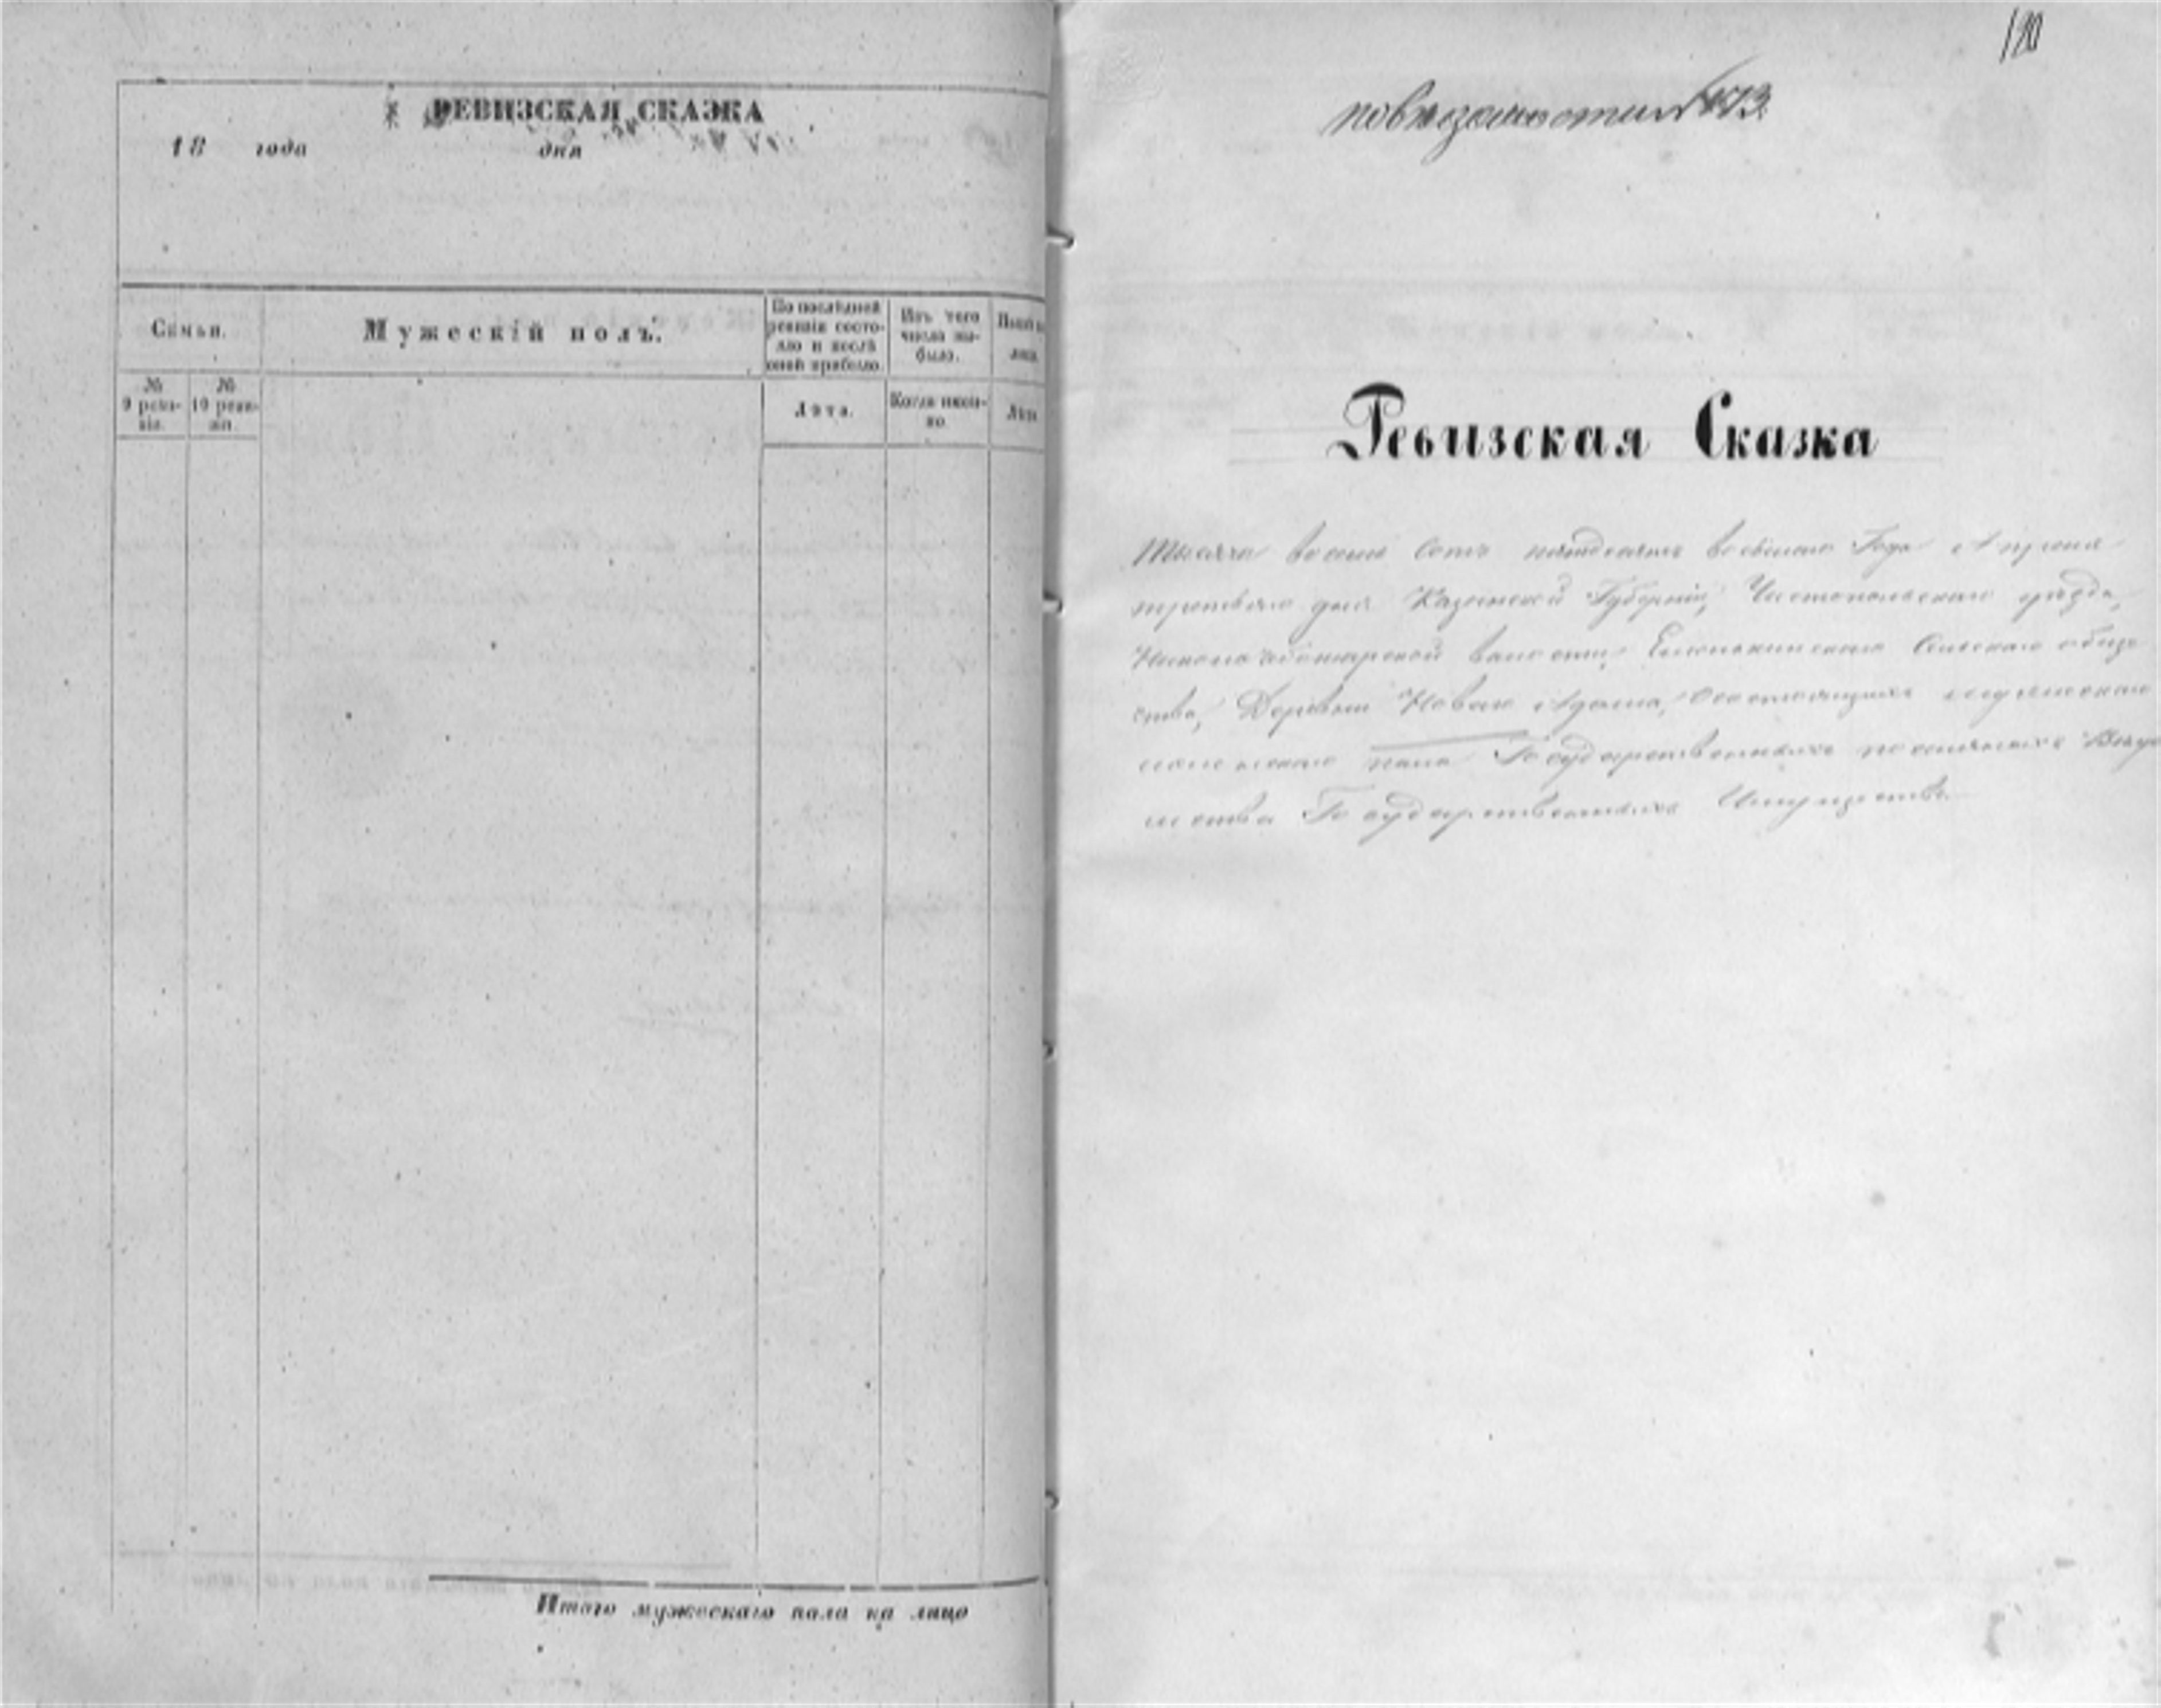 РЕВИЗСКАЯ СКАЗКА
18 года дня
Семьи.
Мужескій полъ.
По послѣдней ревизіи состояло и послѣ оной прибыло.
Изъ того числа выбыло.
№ 9 ревизіи.
№ 10 ревизіи.
Лѣта.
Когда именно
Лѣта
Итого мужескаго пола на лицо
190
№ 473
Ревизская Сказка
Тысяча восемь сотъ пятдесятъ восьмаго Года Апреля
третьяго дня Казанской Губерніи, Чистопольскаго уѣзда,
волости, Сельскаго обще
ства, Деревни Новаго Адама, Состоящихъ мужескаго
женскаго пола Государственныхъ Вѣдо
мства Государственныхъ Имуществъ